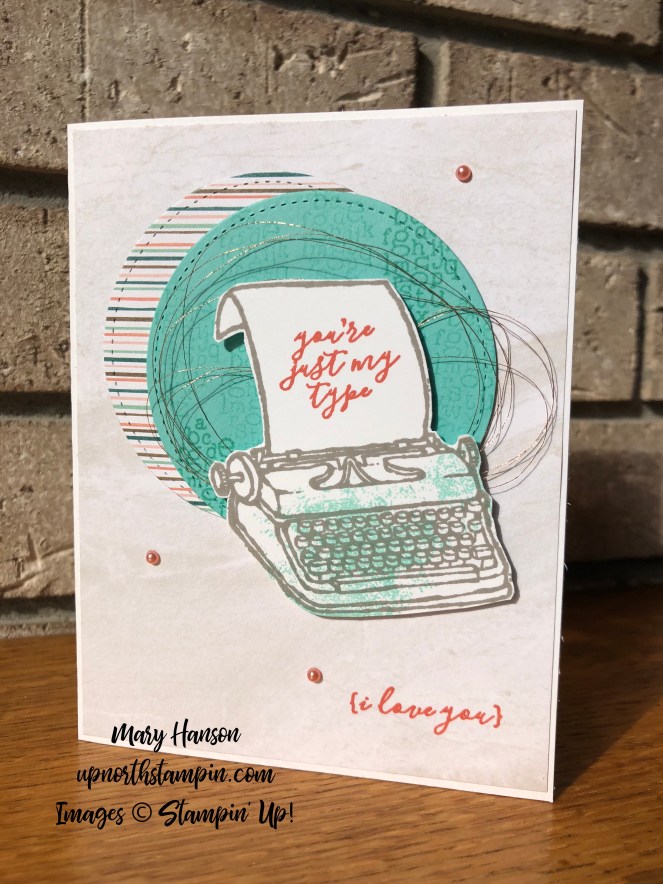 you're
just my
type
{i love you}
Mary Hanson
upnorthstampin.com
Images © Stampin' Up!